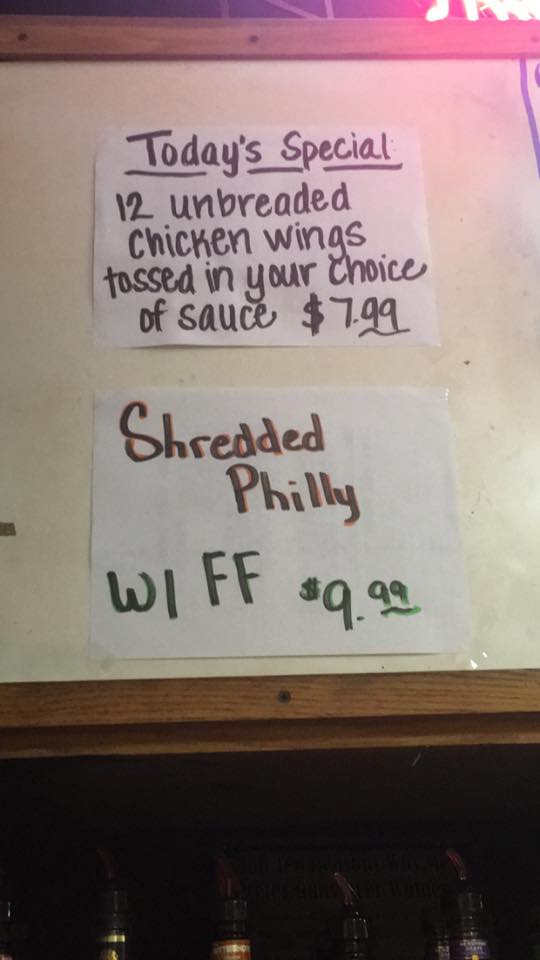 Today's Special
12 unbreaded
chicken wings
tossed in your choice
of sauce $7.99
Shredded
Philly
W/ FF $9.99